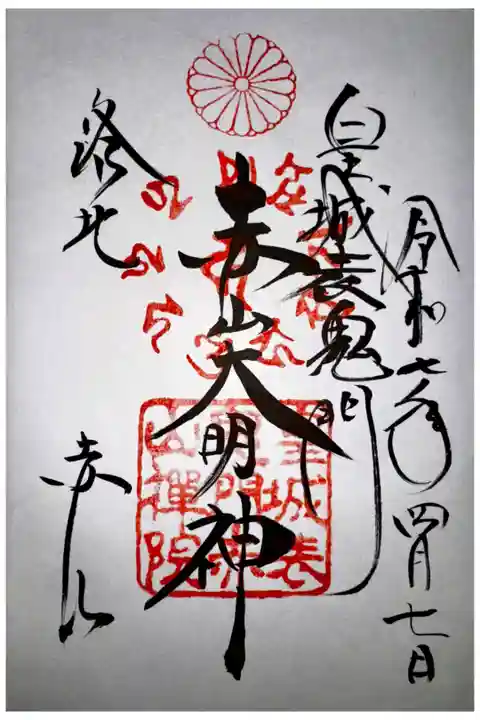 令和七年 四月 七日
皇城表鬼門
赤山大明神
洛北
赤山
皇城表
鬼門赤
山禅院